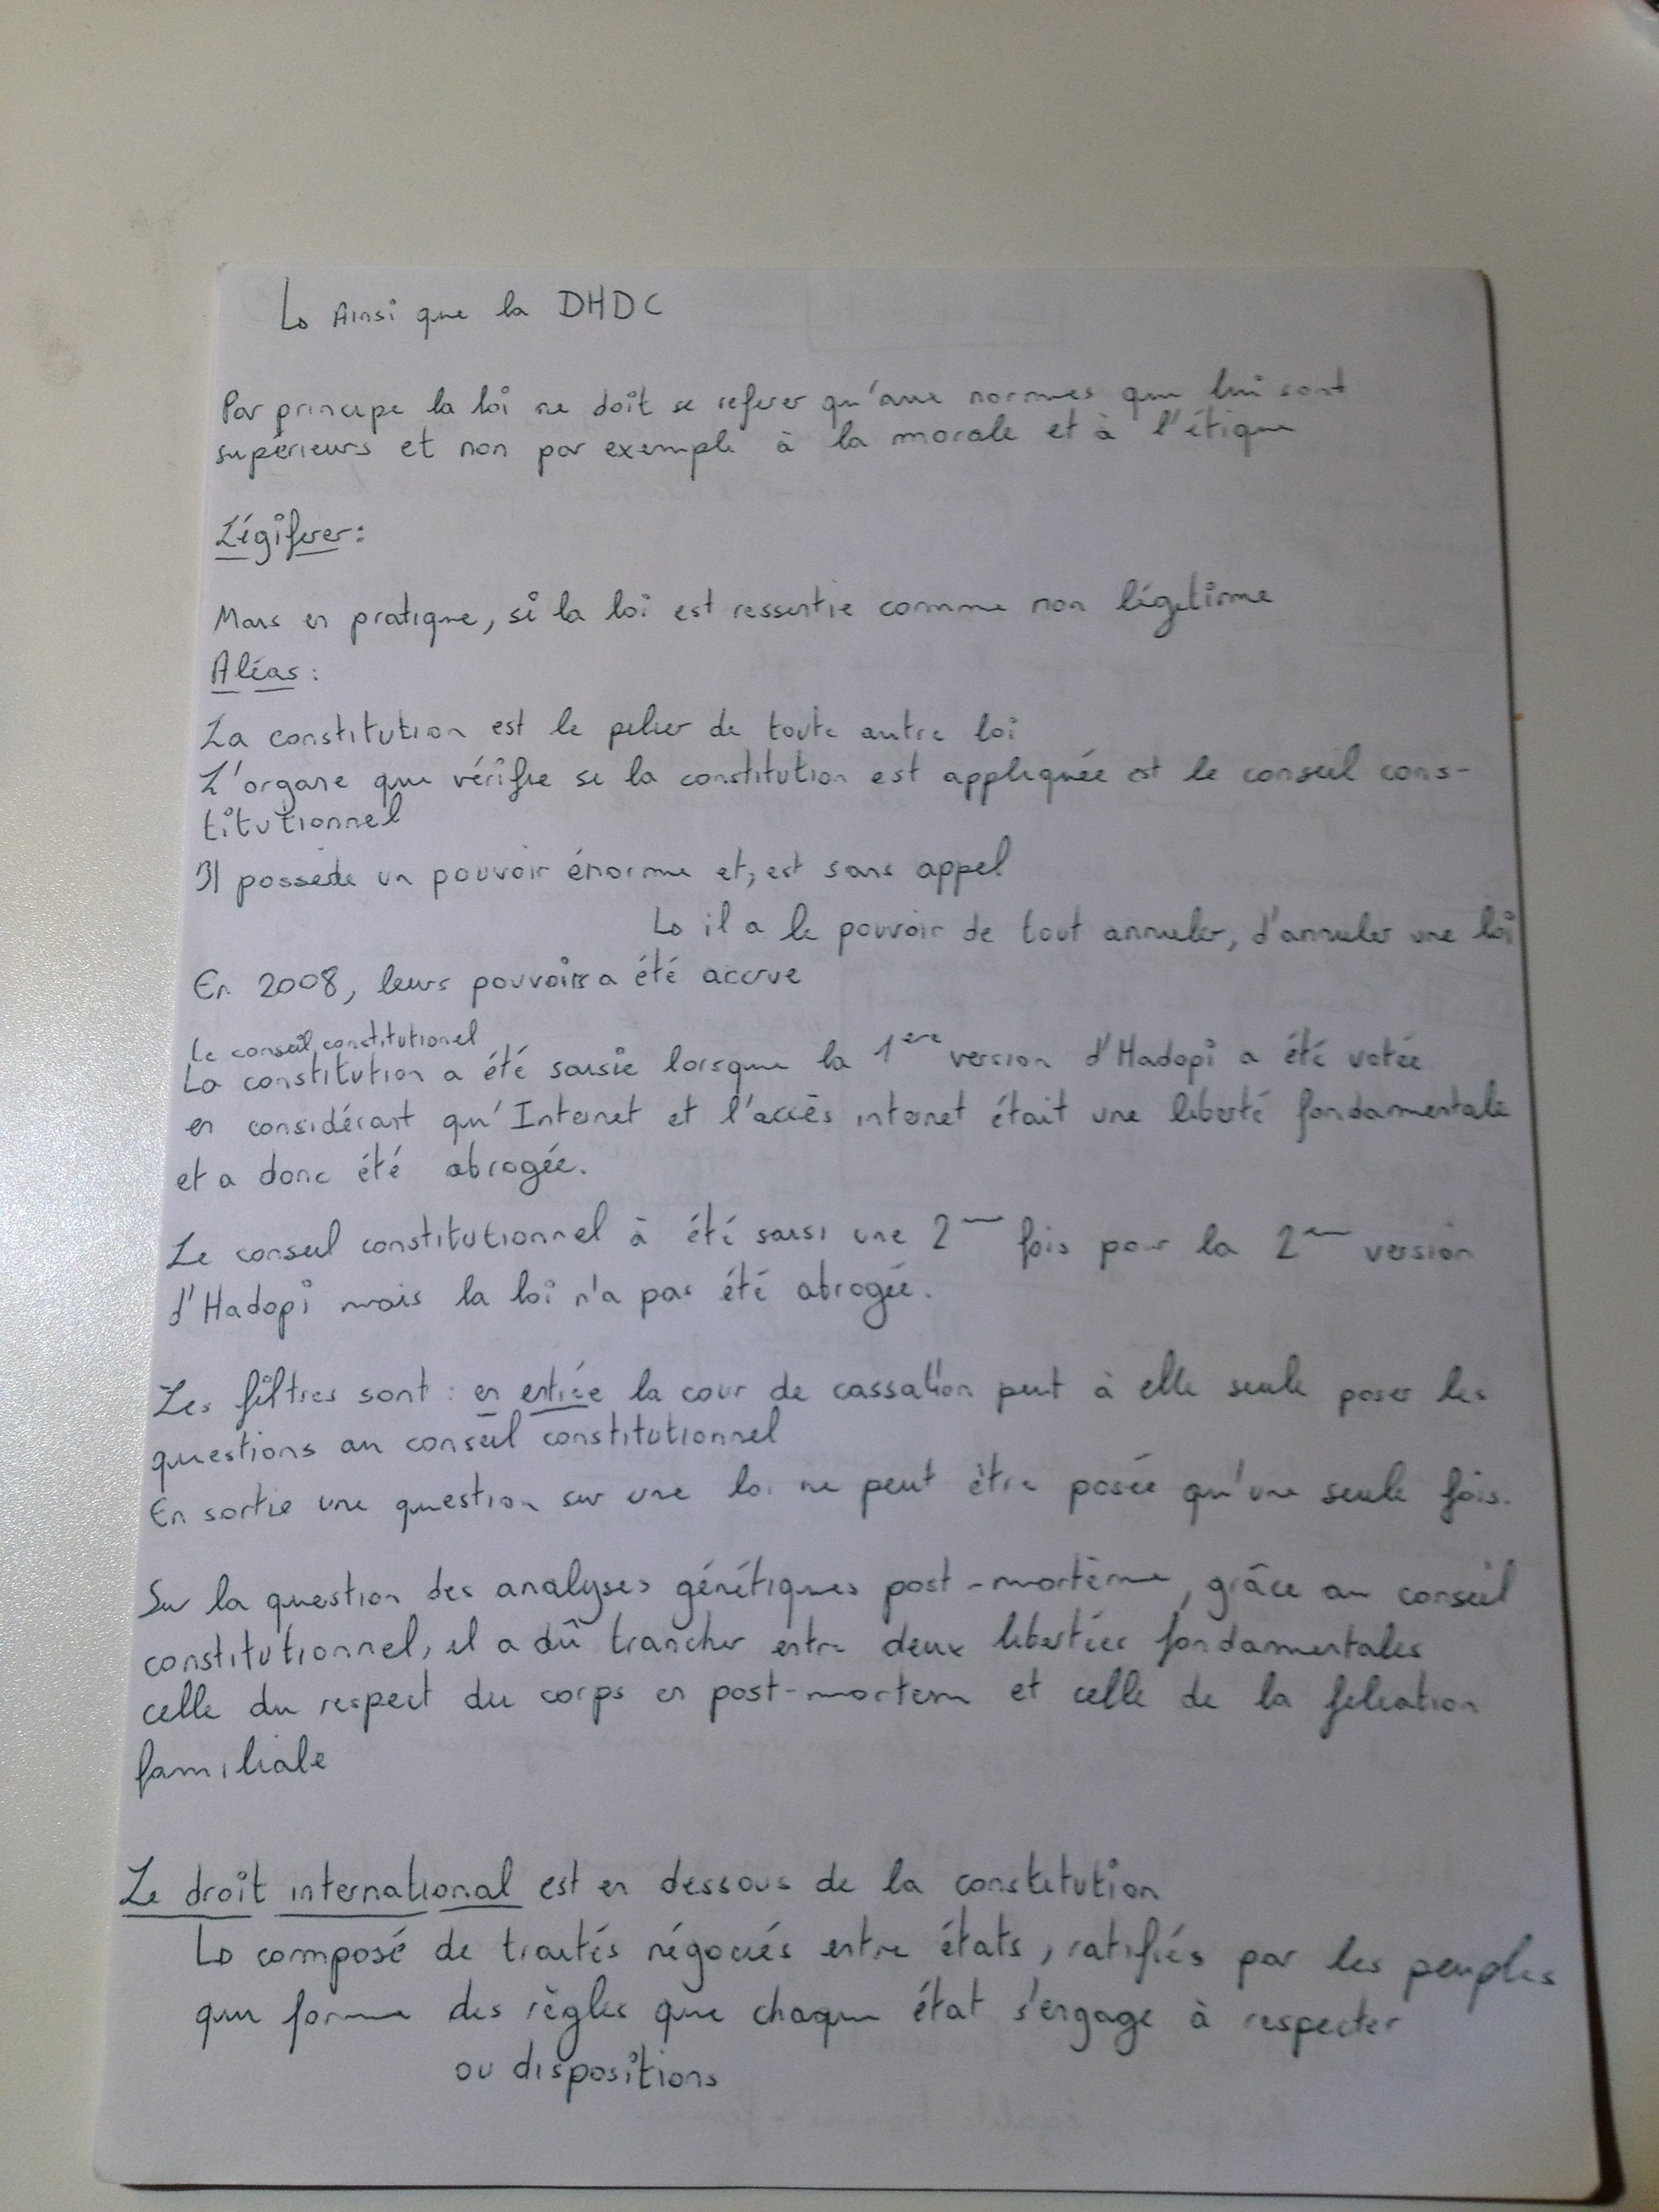 ↳ Ainsi que la DHDC
Par principe la loi ne doit se referer qu'aux normes qui lui sont
supérieurs et non par exemple à la morale et à l'étique
Légiferer :
Mais en pratique, si la loi est ressentie comme non légitime
Aléas :
La constitution est le pilier de toute autre loi
L'organe qui vérifie si la constitution est appliquée est le conseil cons-
titutionnel
Il possède un pouvoir énorme et, est sans appel
↳ il a le pouvoir de tout annuler, d'annuler une loi
En 2008, leurs pouvoirs a été accrue
Le conseil constitutionel
La constitution a été saisie lorsque la 1ère version d'Hadopi a été votée
en considérant qu'Internet et l'accès internet était une liberté fondamentale
et a donc été abrogée.
Le conseil constitutionnel à été saisi une 2ème fois pour la 2ème version
d'Hadopi mais la loi n'a pas été abrogée.
Les filtres sont : en entrée la cour de cassation peut à elle seule poser les
questions au conseil constitutionnel
En sortie une question sur une loi ne peut être posée qu'une seule fois.
Sur la question des analyses génétiques post-mortème, grâce au conseil
constitutionnel, il a dû trancher entre deux libertées fondamentales
celle du respect du corps en post-mortem et celle de la filiation
familiale
Le droit international est en dessous de la constitution
↳ composé de traités négociés entre états, ratifiés par les peuples
qui forme des règles que chaque état s'engage à respecter
ou dispositions